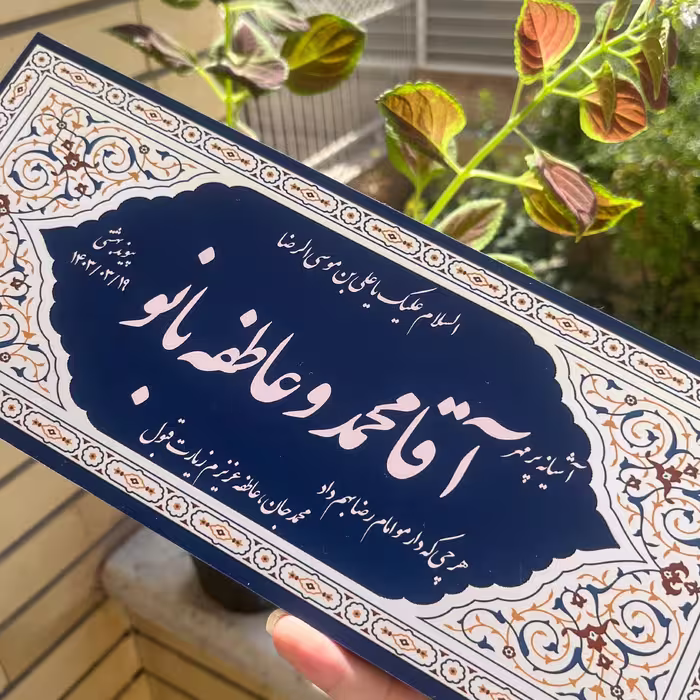 السلام علیک یا علی بن موسی الرضا
آشیانه پر مهر
آقا محمد و عاطفه بانو
پیوند بهشتی
۱۴۰۳/۰۳/۱۹
هر چی که دارمو امام رضا بهم داد
محمد جان، عاطفه عزیزم زیارت قبول